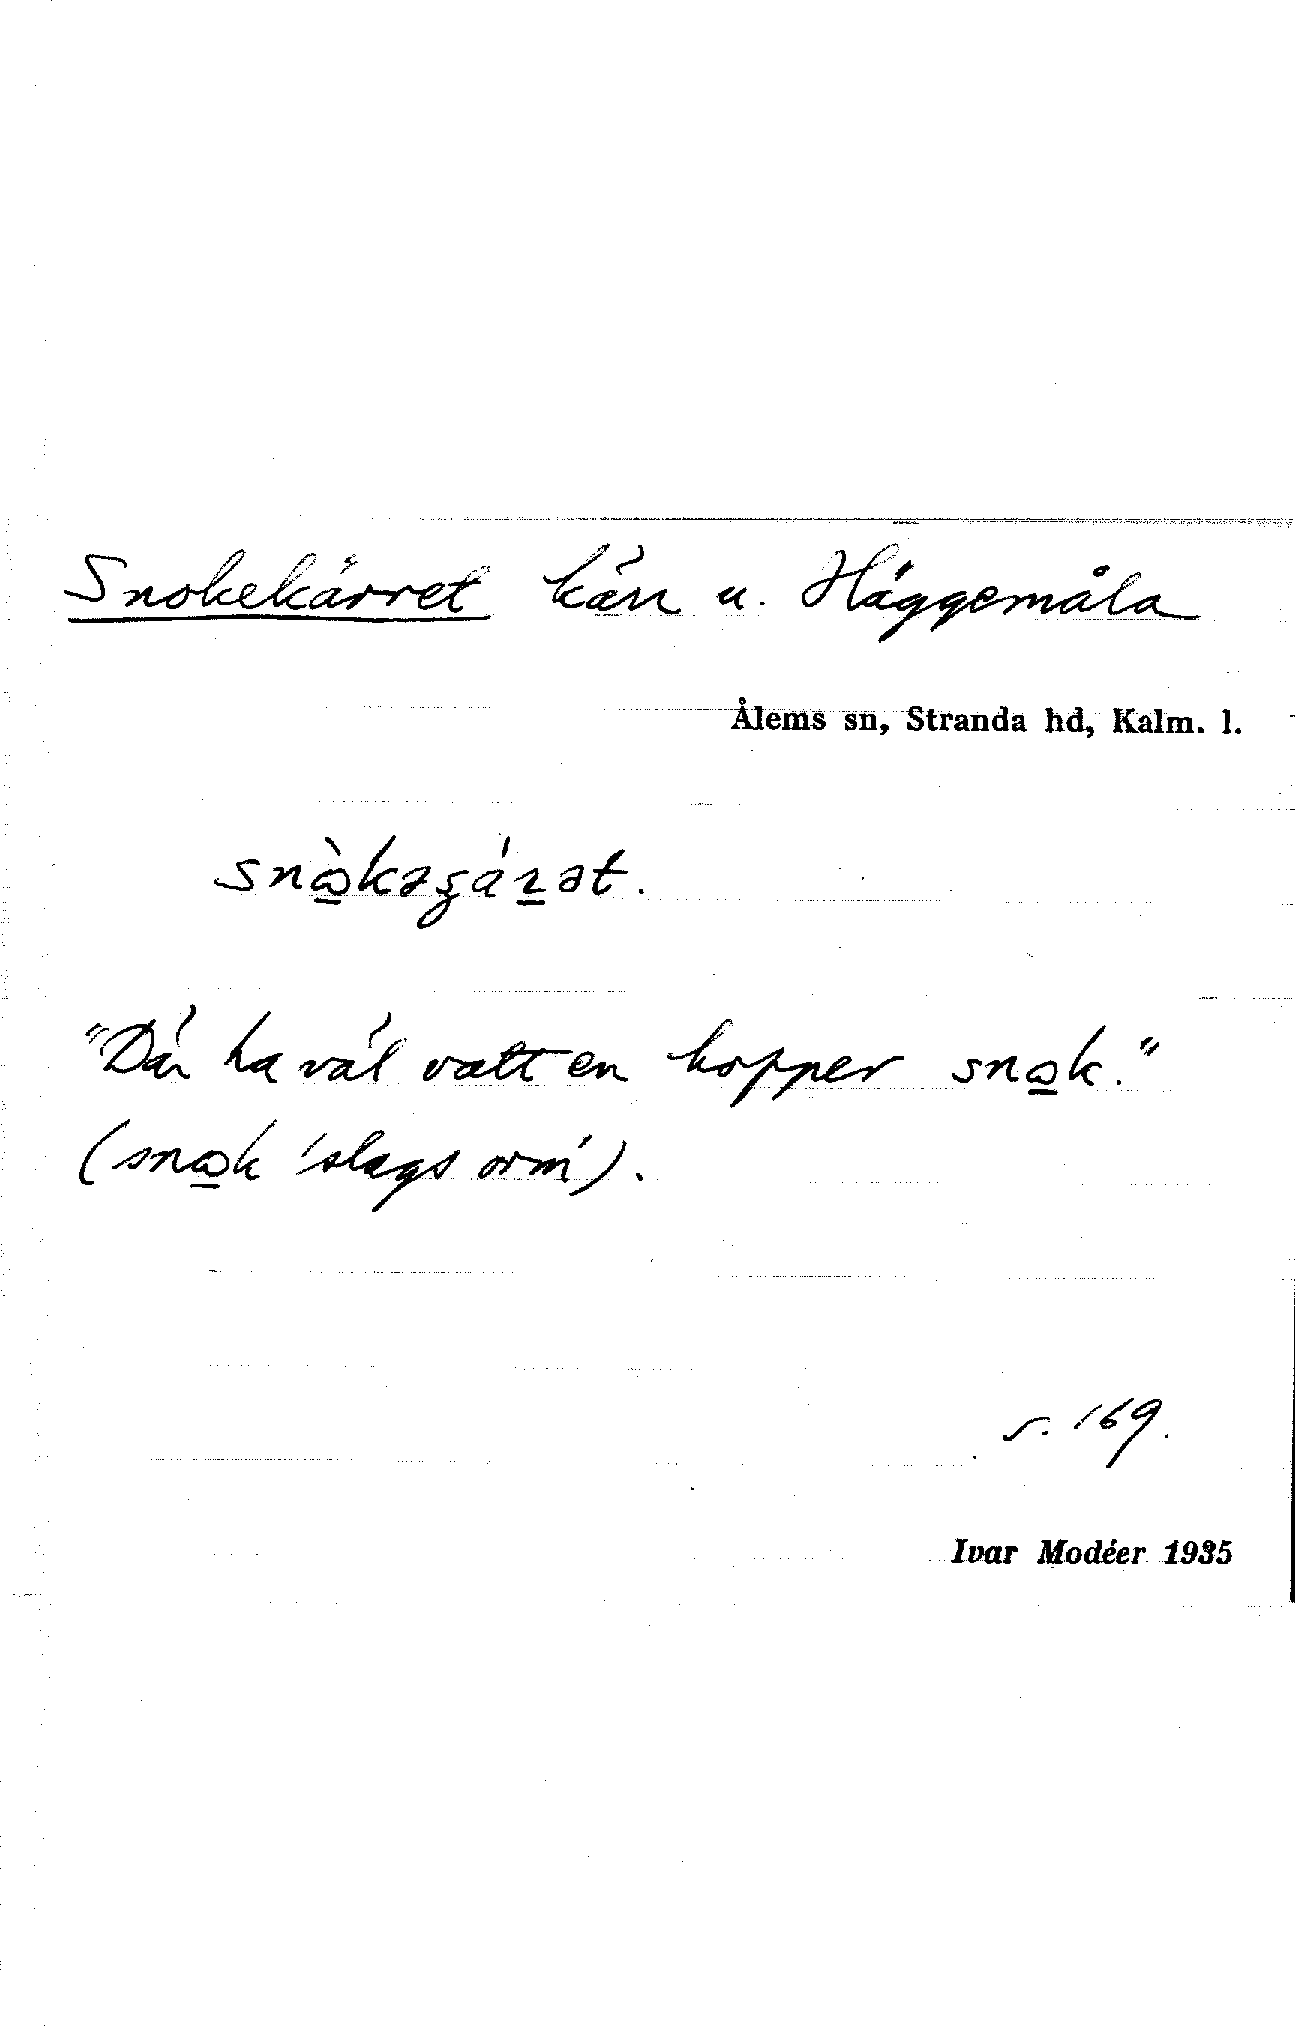 Snokekärret kärr u. Häggemåla
Ålems sn, Stranda hd, Kalm. l.
"Där ha väl vatt en hopper snok."
(snok 'slags orm').
s. 169.
Ivar Modéer 1935